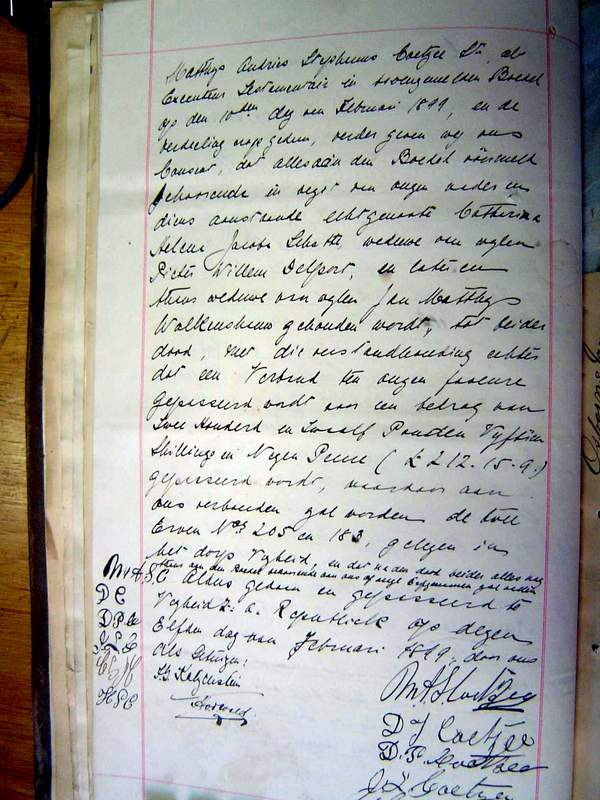 Matthys Andries Stephanus Coetzee Sr., als
Executeur Testamentair in voorgemelden Boedel
op den 10den dag van Februari 1899, en de
verdeeling erop gedaan, verder geven wij ons
Consent, dat alles aan den Boedel voormeld
behoorende in bezit van onzen vader en
diens aanstaande echtgenoote Catharina
Helena Jacoba Schutte, weduwe van wijlen
Pieter Willem Delport, en later en
thans weduwe van wijlen Jan Matthys
gehouden wordt, tot beider
dood, met die verstandhouding echter
dat een Verband ten onzen faveure
gepasseerd wordt voor een bedrag van
Twee Honderd en Twaalf Ponden Vyftien
Shillings en Negen Pence (£ 212.15.9.)
gepasseerd wordt, waarvoor aan
ons verbonden zal worden de twee
Erven Nos 205 en 183, gelegen in
het dorp Vryheid, en dat na den dood beider alles
M.A.S.C Aldus gedaan en gepasseerd te
DC
Vryheid Z: A. Republiek op dezen
D.P.C
Elfden dag van Februari 1899, door ons
J.L.C
Als Getuigen:
H.S.C
M A S Coetzee
D J Coetzee
D. P.
J. L. Coetzee